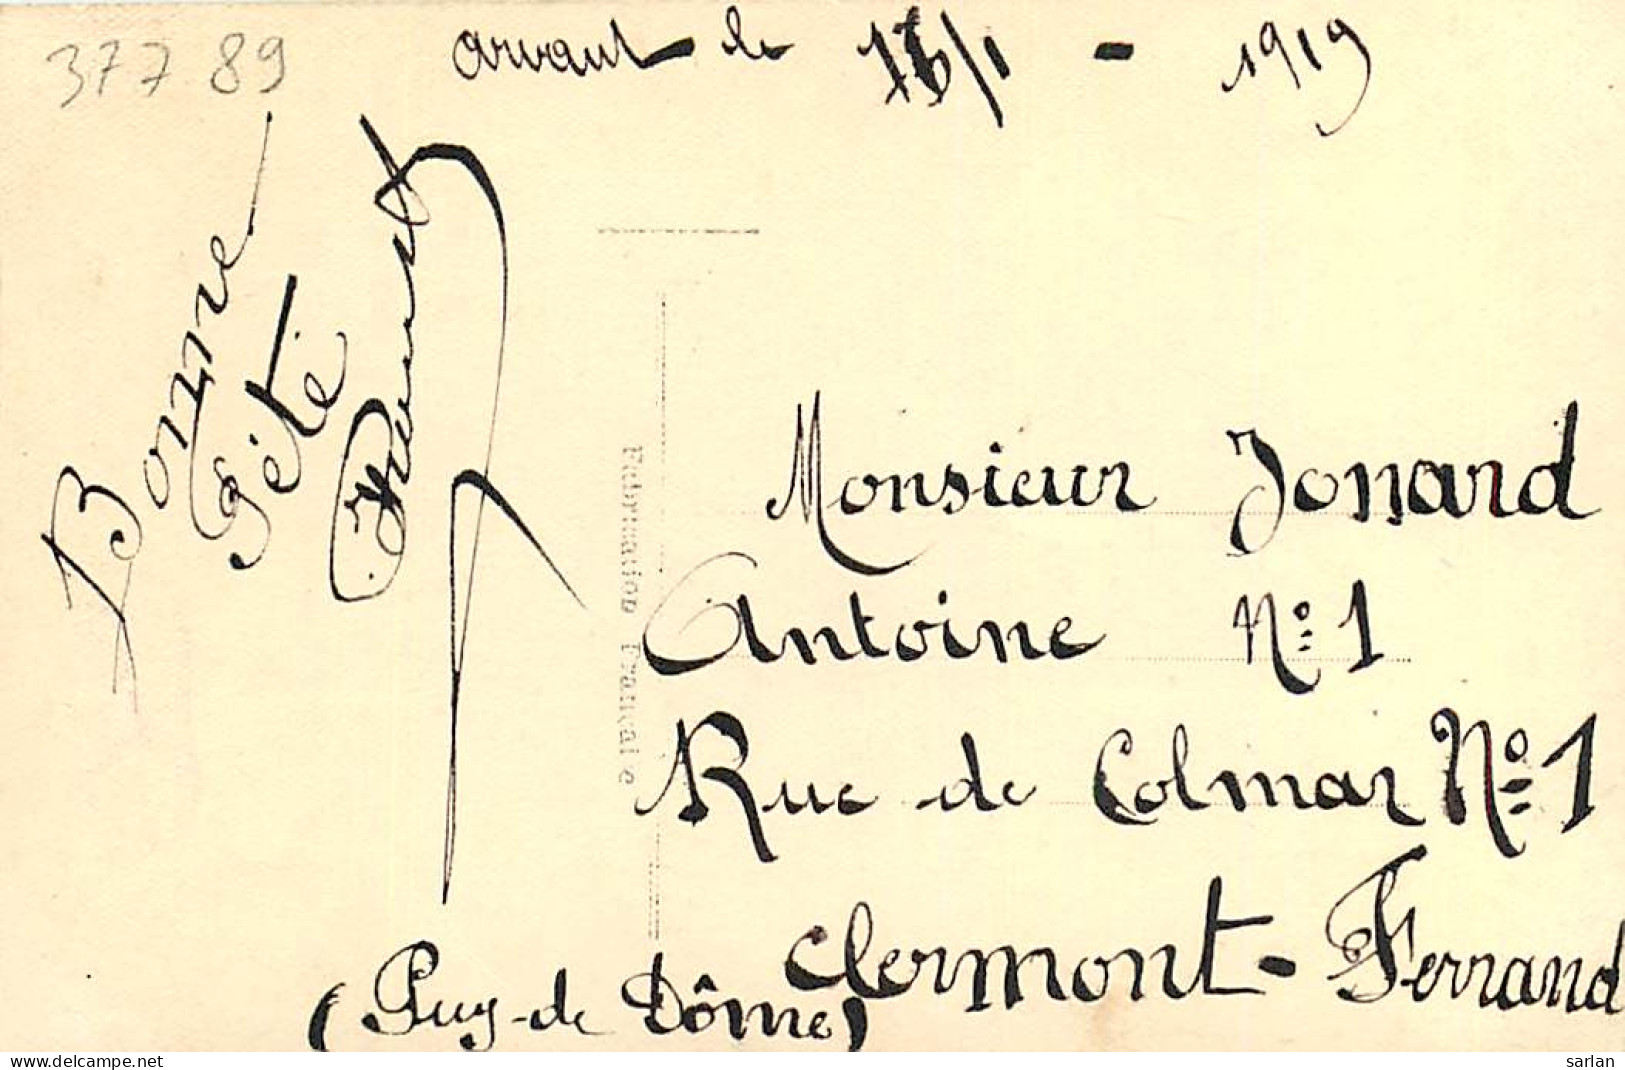 37789
arvant le 16/1 - 1919
Bonne
Fête
Fabrication Française
Monsieur Jonard
Antoine N° 1
Rue de Colmar N° 1
Clermont-Ferrand
(Puy-de Dôme)
https://www.delcampe.net
sarlan